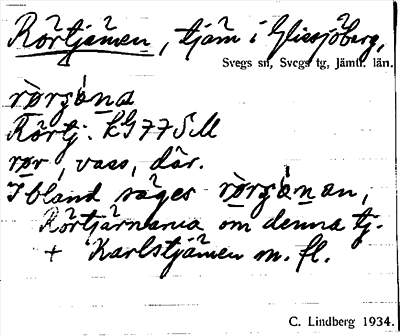 Rörtjärnen, tjärn i Glissjöberg,
Svegs sn, Svegs tg, Jämtl. län.
rørsǝna
Rörtj. LG 77 SM
rør, vass, där.
Ibland säges
Rörtjärnarna om denna tj.
+ Karlstjärnen m. fl.
C. Lindberg 1934.